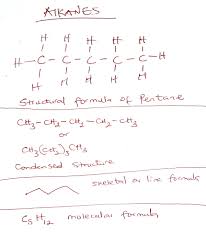 ALKANES
H H H H H
H-C-C-C-C-C-H
H H H H H
Structural formula of Pentane
CH3-CH2-CH2-CH2-CH3
or
CH3(CH2)3CH3
Condensed Structure
skeletal or line formula
C5H12 molecular formula